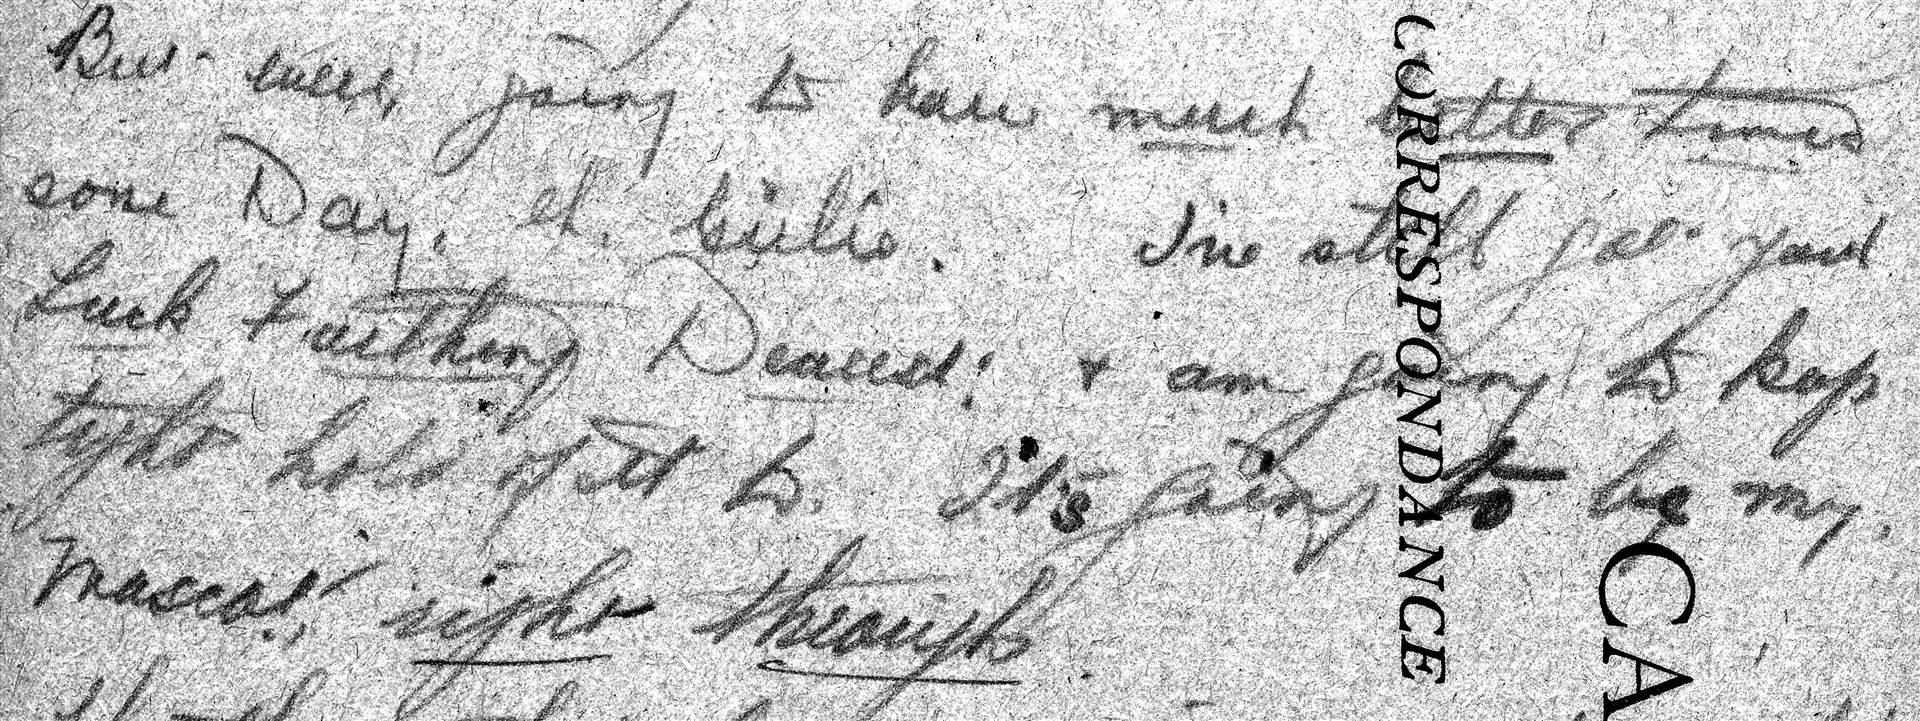 But we're going to have much better times
some Day, eh. Girlie. I've still got your
Luck Farthing Dearest, & am going to keep
tight hold of it to. It's going to be my.
Mascot, right through.
CORRESPONDANCE
CA